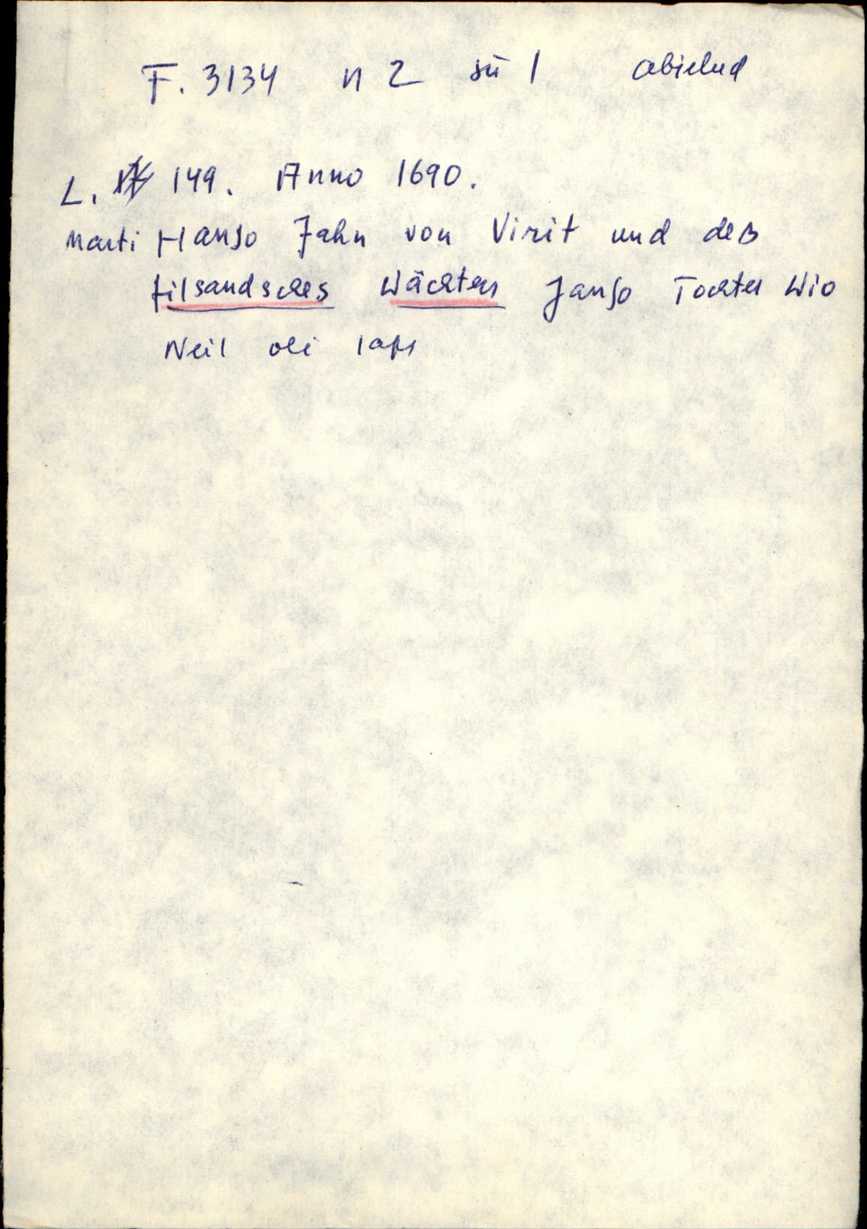 F. 3134 n 2 sü 1 abielud
L. 149. Anno 1690.
Marti Hanso Jahn von Virit und des
filsandsches Wächters Janso Tochter Wio
Neil oli laps